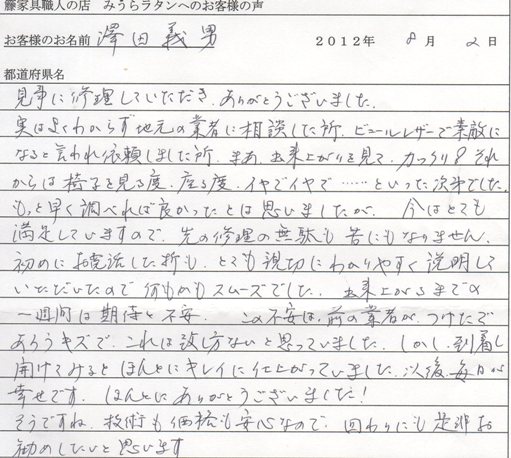 籐家具職人の店 みうらラタンへのお客様の声
お客様のお名前 澤田義男 2012年 8月 2日
都道府県名
見事に修理していただき、ありがとうございました。
実はよくわからず地元の業者に相談した所、ビニールレザーで素敵に
なると言われ依頼しました所、まあ、出来上がりを見て、ガックリ!それ
からは椅子を見る度、座る度、イヤでイヤで……といった次第でした。
もっと早く調べれば良かったとは思いましたが、今はとても
満足していますので、先の修理の無駄も苦にもなりません。
初めにお電話した折も、とても親切にわかりやすく説明して
いただいたので何もかもスムーズでした。出来上がるまでの
一週間は期待と不安、この不安は、前の業者が、つけたで
あろうキズで、これは致し方ないと思っていました。しかし、到着し
開けてみるとほんとにキレイに仕上がっていました。以後、毎日が
幸せです。ほんとにありがとうございました!
そうですね、技術も価格も安心なので、回わりにも是非お
勧めしたいと思います